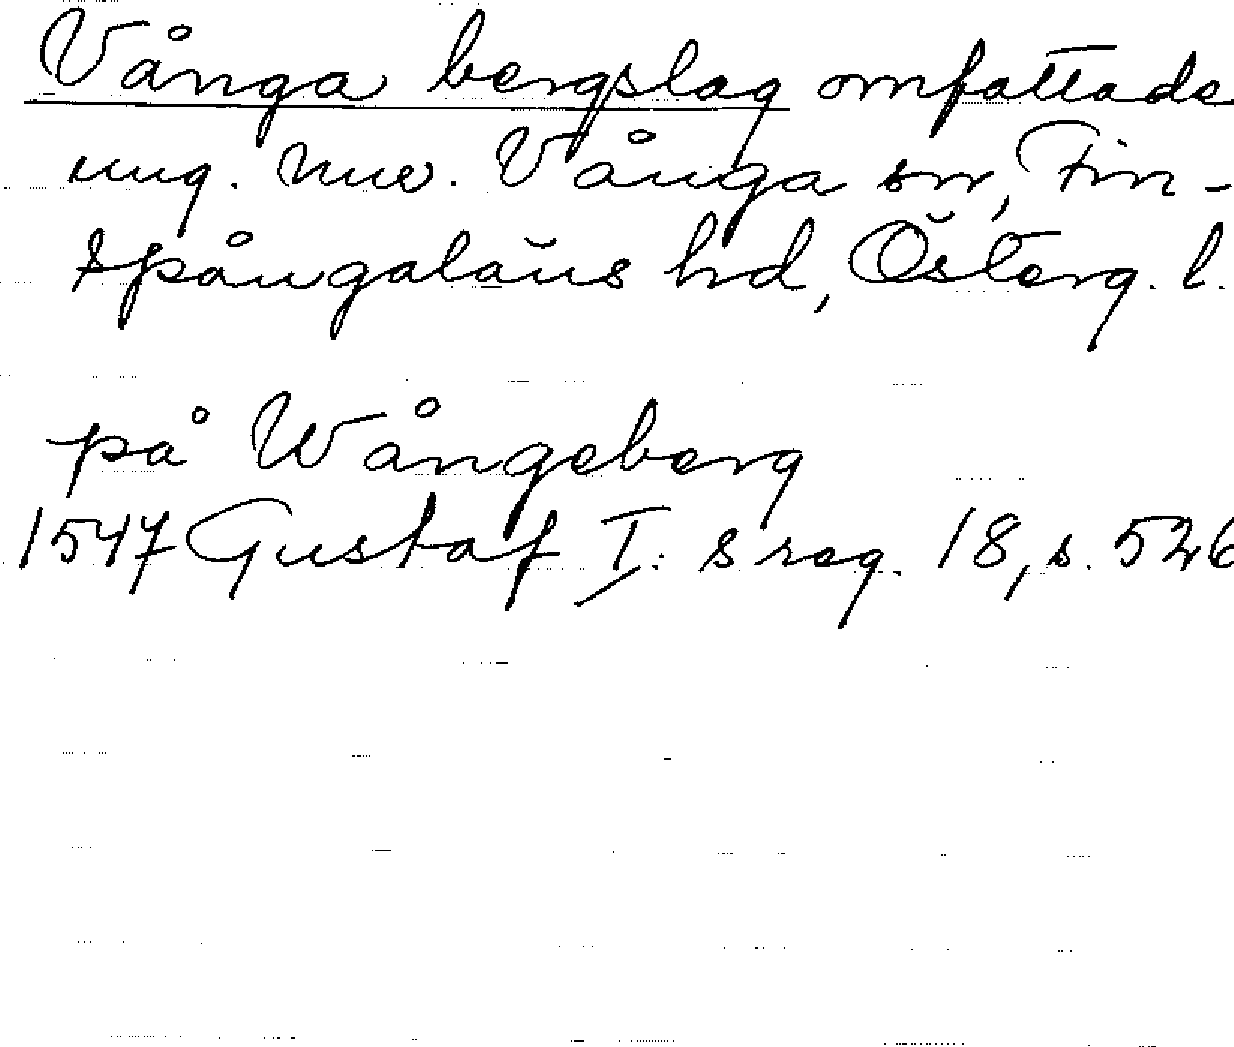 Vånga bergslag omfattade
ung. nuv. Vånga sn, Fin-
spångaläns hd, Österg. l.
på Wångeberg
1547 Gustaf I:s reg. 18, s. 526